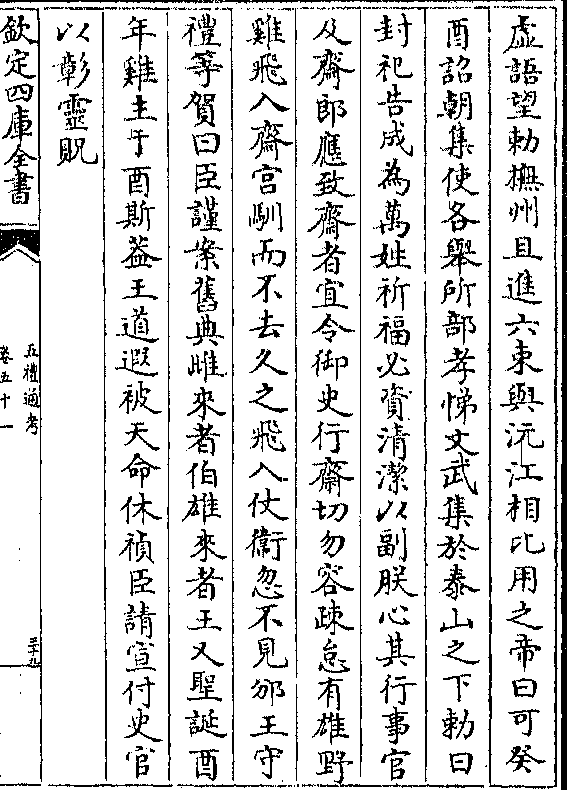 虛語望勅撫州且進六束與沅江相比用之帝曰可癸
酉詔朝集使各舉所部孝悌文武集於泰山之下勅曰
封祀告成為萬姓祈福必資清潔以副朕心其行事官
及齋郎應致齋者宜令御史行齋切勿容疎怠有雄野
雞飛入齋宫馴而不去久之飛入仗衞忽不見邠王守
禮等賀曰臣謹案舊典雌來者伯雄來者王又聖誕酉
年雞主于酉斯葢王道遐被天命休禎臣請宣付史官
以彰靈貺
欽定四庫全書
五禮通考
卷五十一
三十九